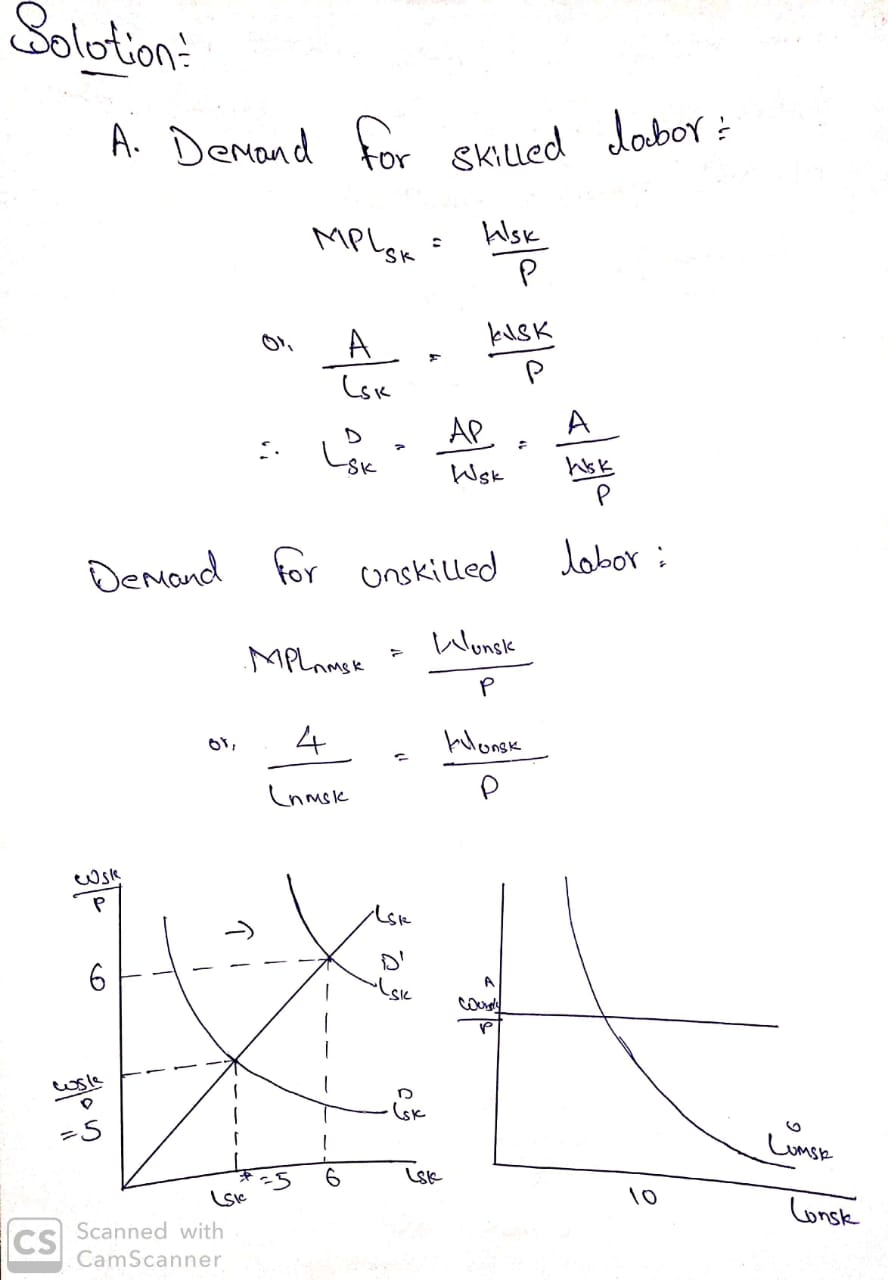 Solution:
A. Demand for skilled labor:
MPLSK = WSK
P
or, A = WSK
LSK P
∴ LSK D = AP = A
WSK WSK
P
Demand for unskilled labor:
MPLnmsk = Wunsk
P
or, 4 = Wunsk
Lnmsk P
WSK
P
→
LSK
6
D'
LSK
WSK
P
=5
D
LSK
LSK * =5 6 LSK
A
P
Lumsk
10 Lunsk
CS Scanned with
CamScanner